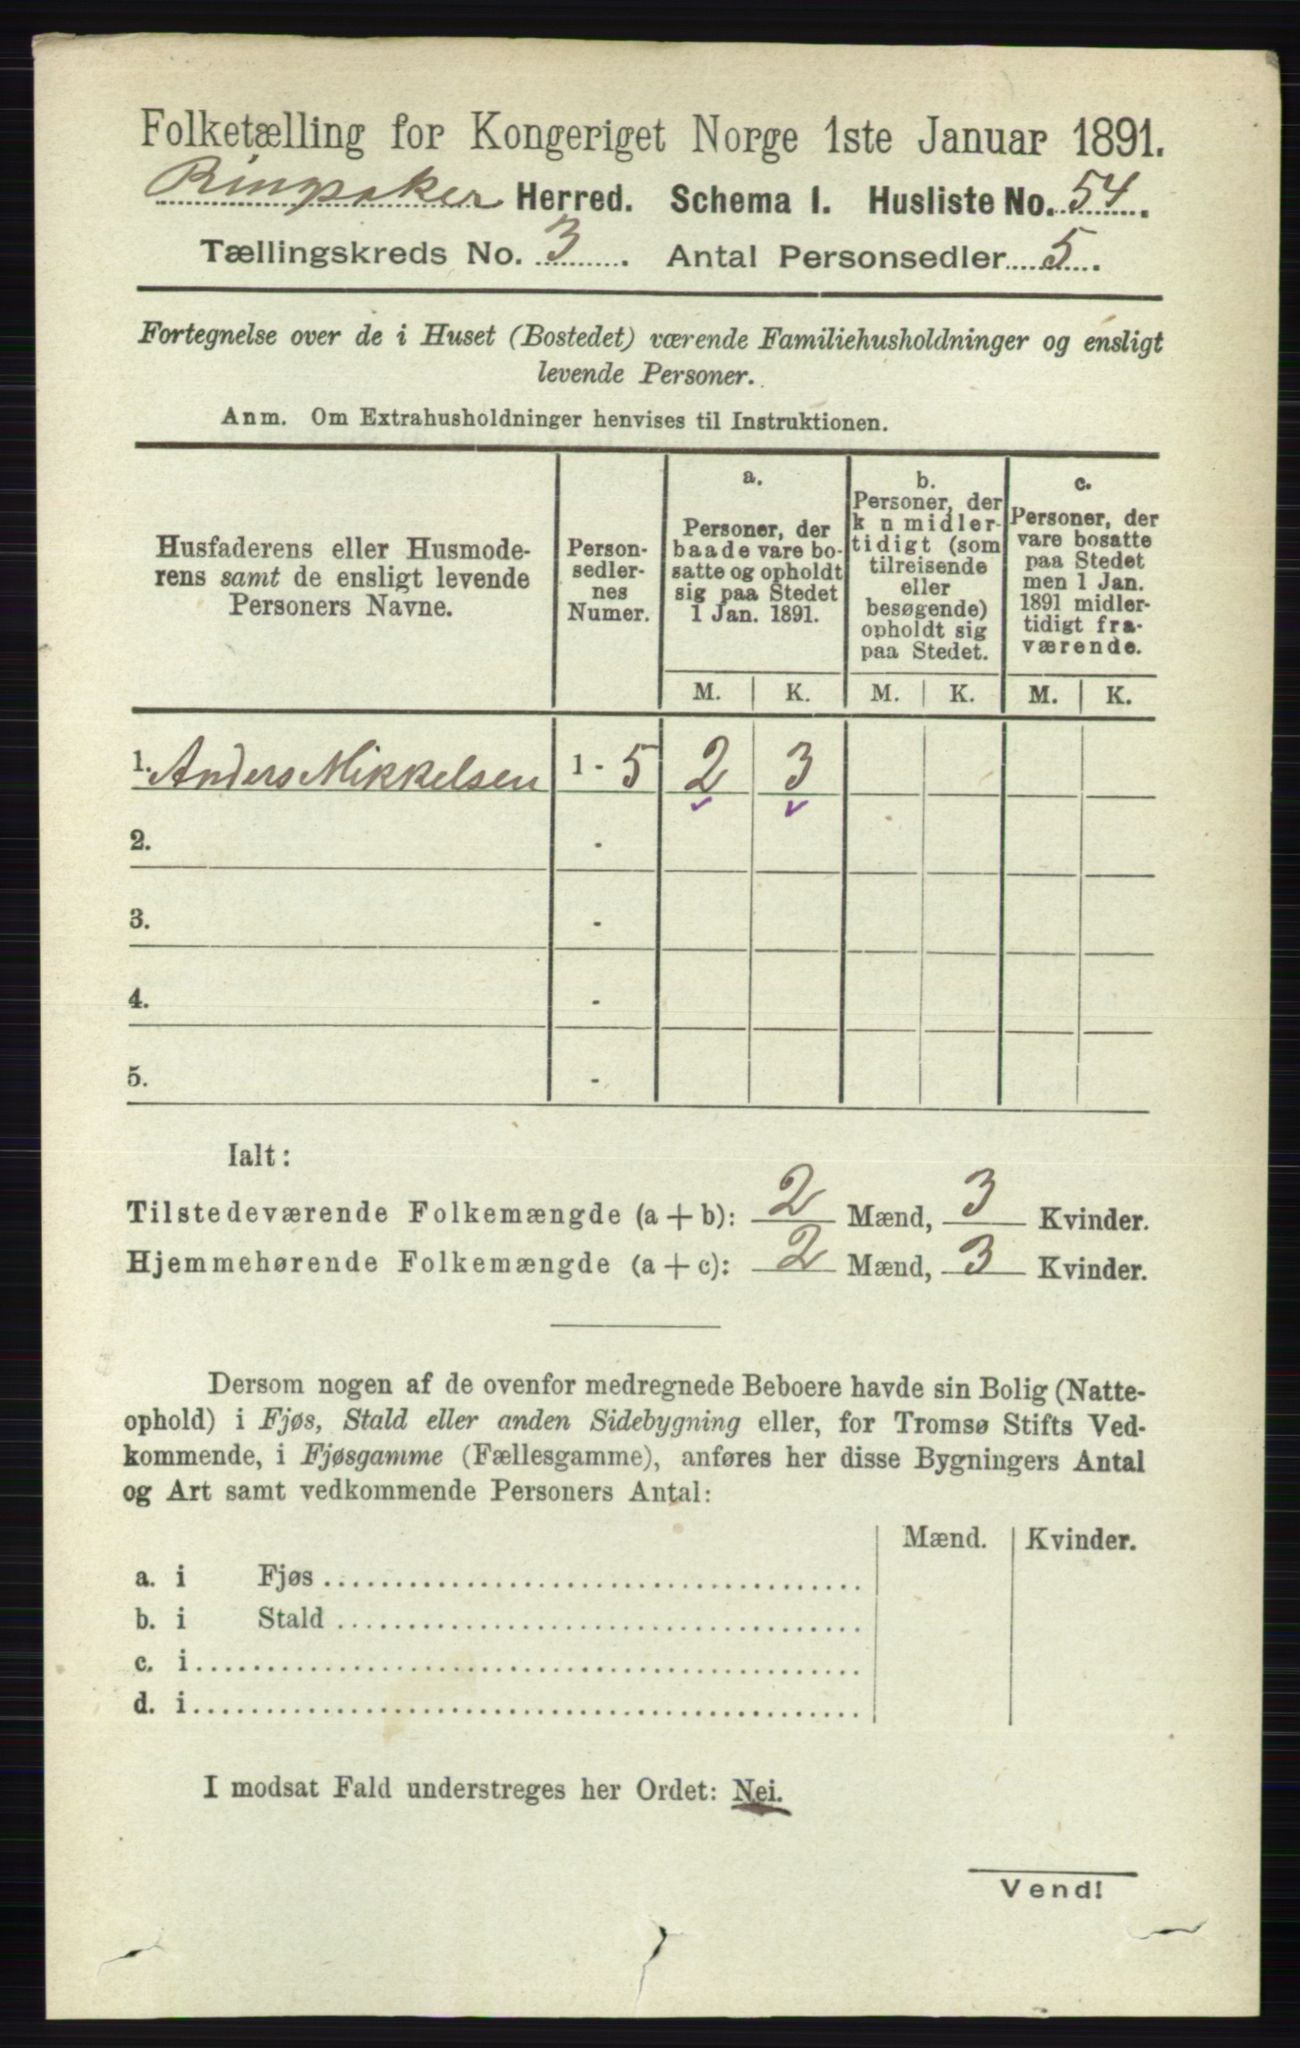 Folketælling for Kongeriget Norge 1ste Januar 1891.
Ringsaker Herred. Schema I. Husliste No. 54.
Tællingskreds No. 3. Antal Personsedler 5.
Fortegnelse over de i Huset (Bostedet) værende Familiehusholdninger og ensligt
levende Personer.
Anm. Om Extrahusholdninger henvises til Instruktionen.
Husfaderens eller Husmode-
rens samt de ensligt levende
Personers Navne.
Person-
sedler-
nes
Numer.
a.
Personer, der
baade vare bo-
satte og opholdt
sig paa Stedet
1 Jan. 1891.
b.
Personer, der
k n midler-
tidigt (som
tilreisende
eller
besøgende)
opholdt sig
paa Stedet.
c.
Personer, der
vare bosatte
paa Stedet
men 1 Jan.
1891 midler-
tidigt fra-
værende.
M. K. M. K. M. K.
1. Anders Mikkelsen 1 - 5 2 3
2. -
3. -
4. -
5. -
Ialt:
Tilstedeværende Folkemængde (a + b): 2 Mænd, 3 Kvinder.
Hjemmehørende Folkemængde (a + c): 2 Mænd, 3 Kvinder.
Dersom nogen af de ovenfor medregnede Beboere havde sin Bolig (Natte-
ophold) i Fjøs, Stald eller anden Sidebygning eller, for Tromsø Stifts Ved-
kommende, i Fjøsgamme (Fællesgamme), anføres her disse Bygningers Antal
og Art samt vedkommende Personers Antal:
Mænd. Kvinder.
a. i Fjøs
b. i Stald
c. i
d. i
I modsat Fald understreges her Ordet: Nei.
Vend!